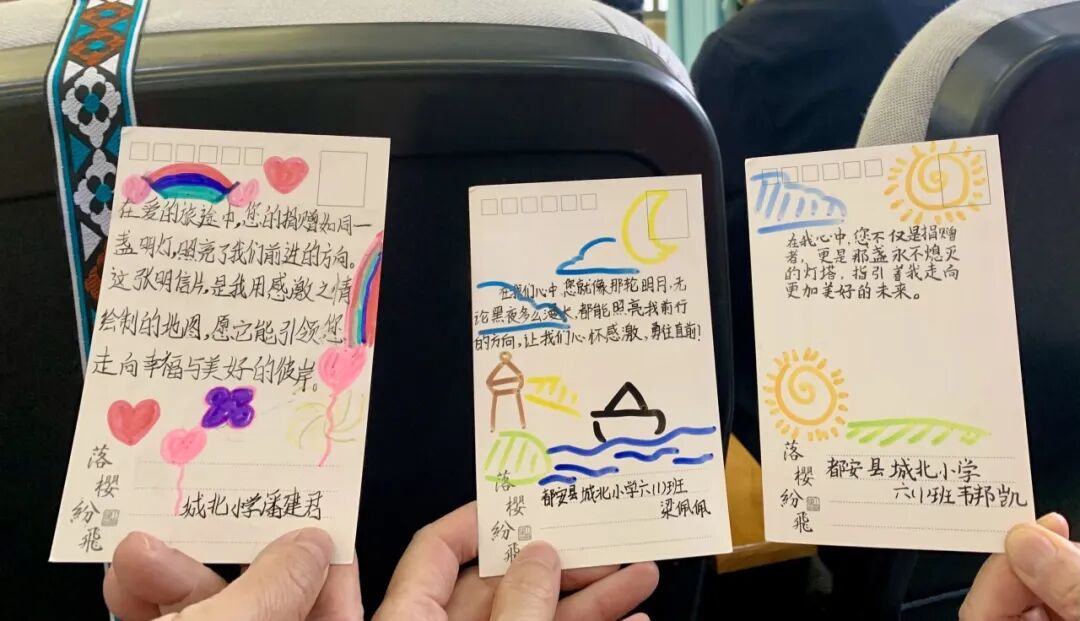 在爱的旅途中，您的捐赠如同一
盏明灯，照亮了我们前进的方向。
这张明信片，是我用感激之情
绘制的地图，愿它能引领您
走向幸福与美好的彼岸。
落櫻紛飛
城北小学潘建君
在我们心中，您就像那轮明月，无
论黑夜多么漫长，都能照亮我前行
的方向，让我们心怀感激，勇往直前！
落櫻紛飛
都安县城北小学六(1)班
梁佩佩
在我心中，您不仅是捐赠
者，更是那盏永不熄灭
的灯塔，指引着我走向
更加美好的未来。
落櫻紛飛
都安县城北小学
六(1)班韦邦凯